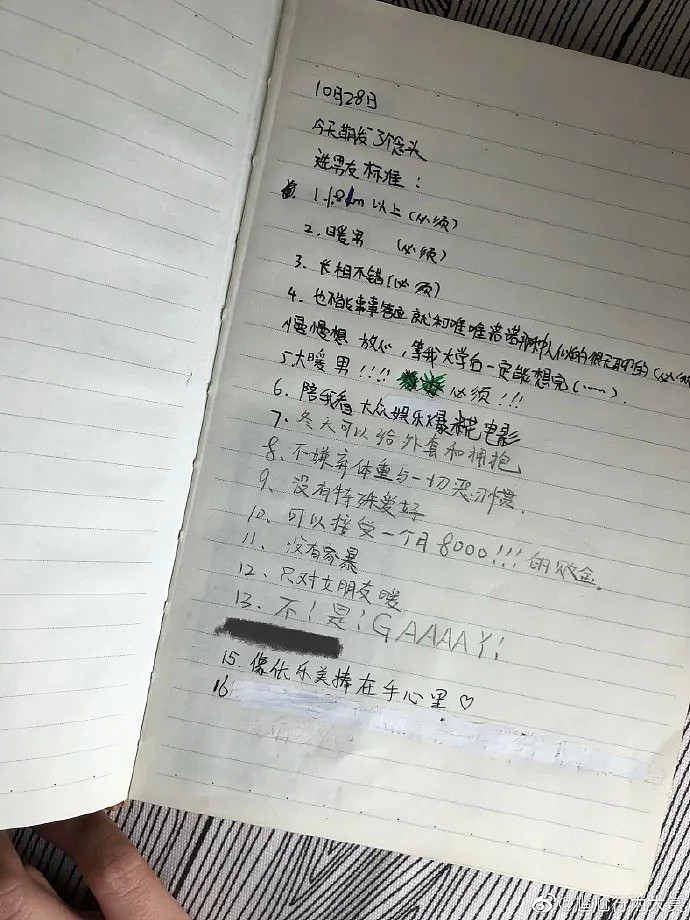 10月28日
今天萌发了个念头
选男友标准：
1.1.81m以上(必须)
2.暖男 (必须)
3.长相不错(必须)
4.也不能事事答应 就和唯唯诺诺
慢慢想 放心,等我大学后一定能想完(……).
5.大暖男!!!! 必须!!!
6.陪我看大众娱乐爆米花电影
7、冬天可以给外套和拥抱
8、不嫌弃体重与一切恶习惯.
9、没有特殊爱好
10、可以接受一个月8000!!!的败金.
11、没有家暴
12、只对女朋友暖
13、不！是！GAAAAY!
15.像优乐美捧在手心里♡
16